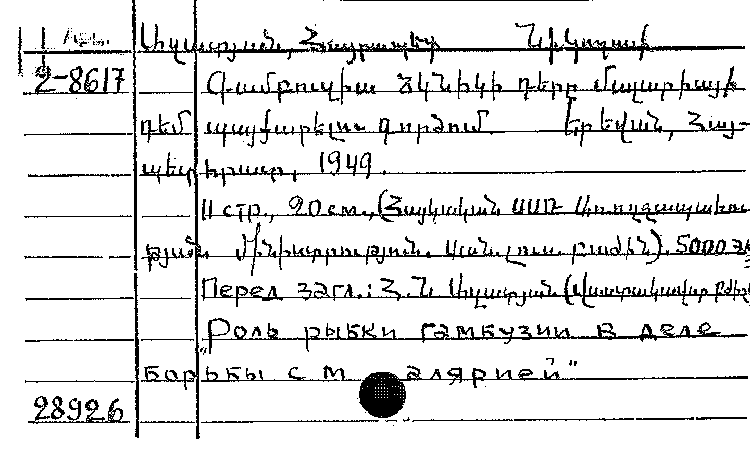 Հայրապետ Նիկողասի
2-8617 Գամբուզիա ձկնիկի դերը մալարիայի
դեմ պայքարելու գործում Երևան, Հայ-
պետհրատ, 1949.
11 стр., 20 см., (Հայկական ՍՍՌ Առողջապահու
թյան մինիստրություն. Սան. լուս. բաժին). 5000 эк
Перед загл.: Հ. Ն.
„Роль рыбки гамбузии в деле
борьбы с малярией"
28926